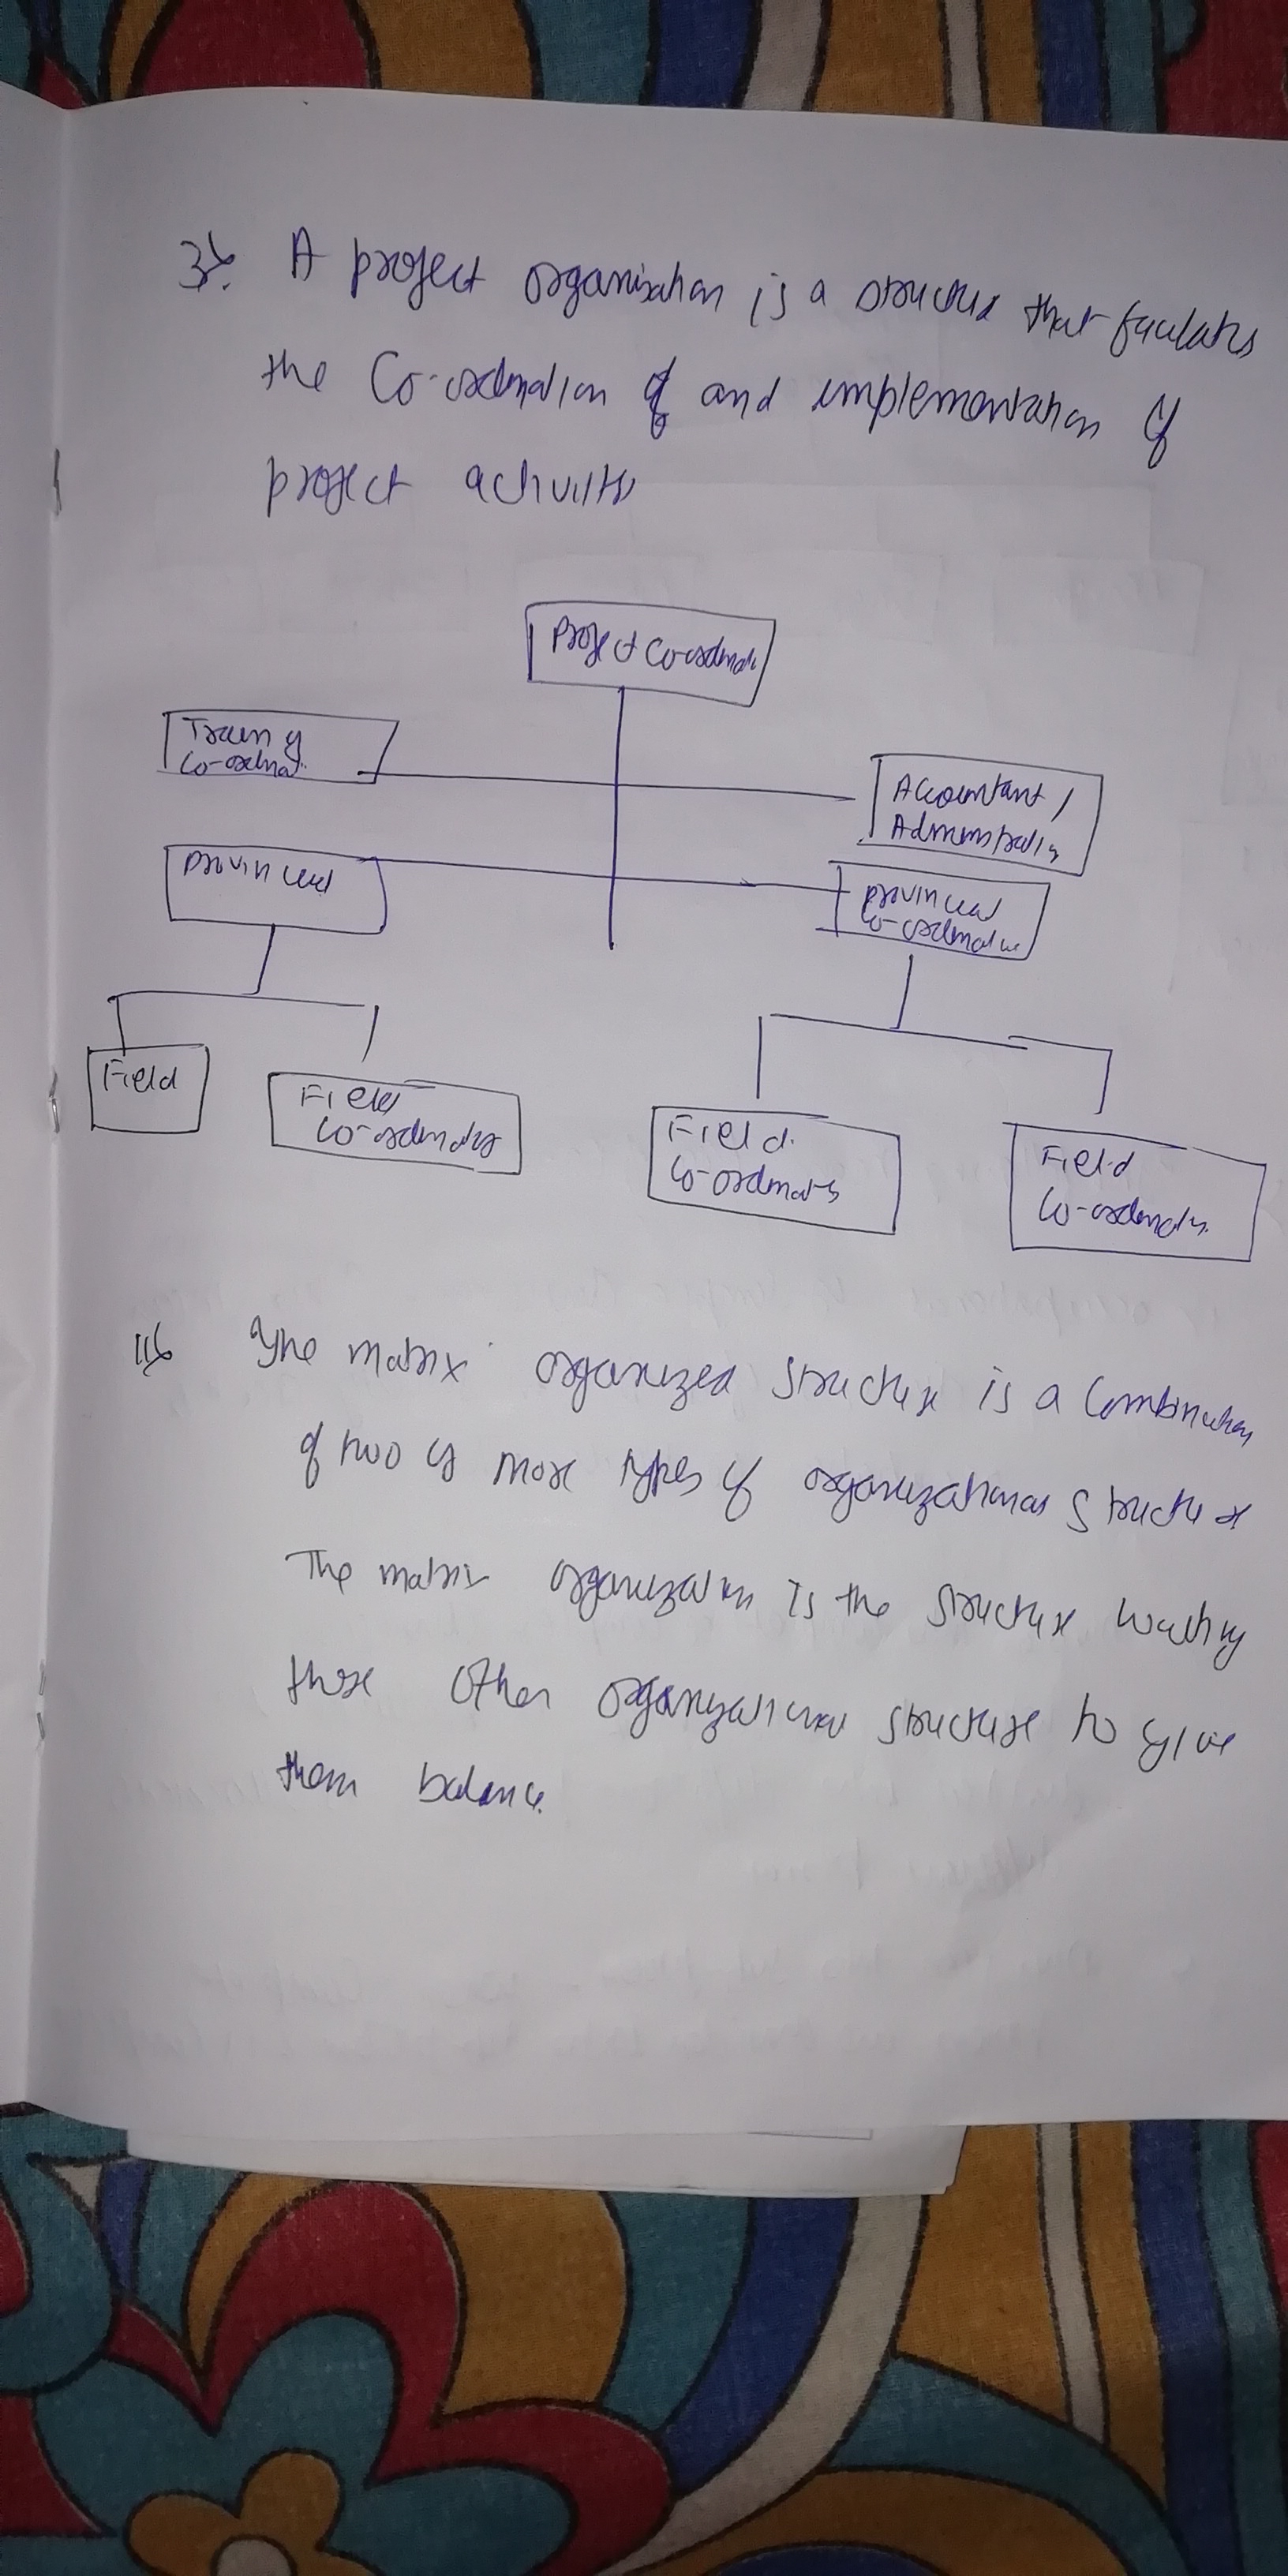 3). A project organisation is a structure that facilates
the Co-ordination of and implementation of
project activities
Project Co-ordinator
Training
Co-ordinat.
Accountant /
Administratis
Provincial
Provincial
Co-ordinator
Field
Field
Co-ordinators
Field
Co-ordinators
Field
Co-ordinators
11) The matrix organized structure is a Combination
of two or more types of organizational structure
The matrix organization is the structure
those other organizational structure to give
them balance.